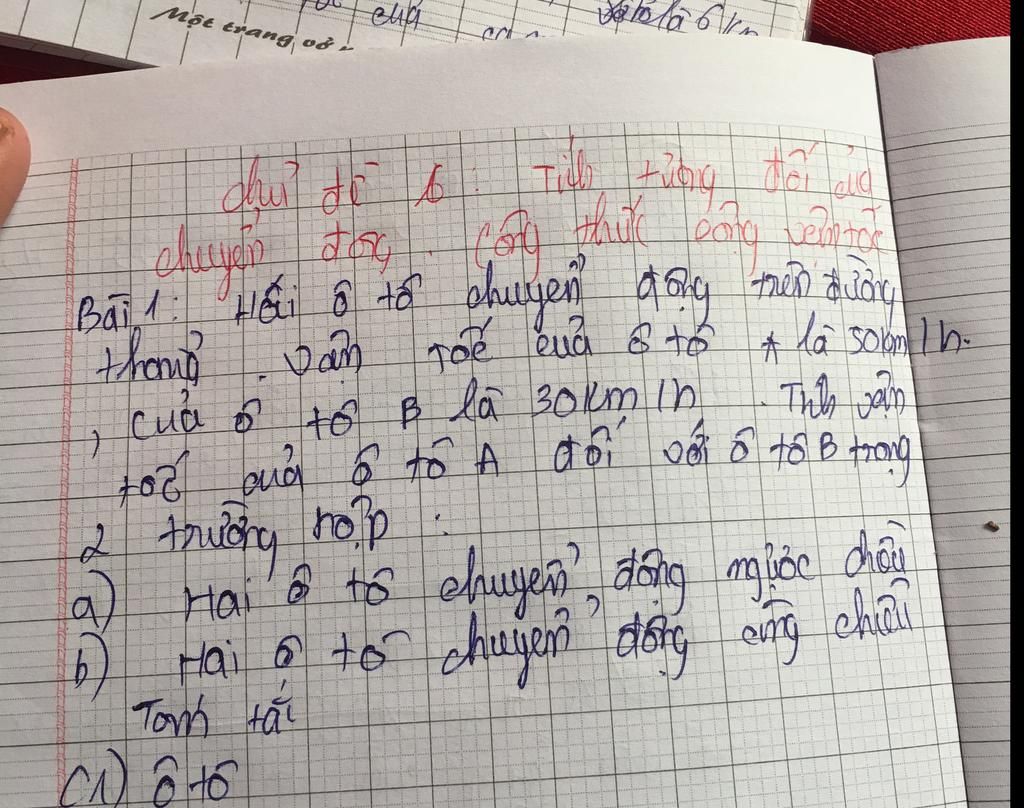 của
vở tô là 6 km
Một trang vở
chủ đề 6: Tính tương đối của
chuyển động. Công thức cộng vận tốc
Bài 1: Hai ô tô chuyển động trên đường
thẳng. Vận tốc của ô tô A là 50km/h.
, của ô tô B là 30km/h. Tính vận
tốc của ô tô A đối với ô tô B trong
2 trường hợp:
a) Hai ô tô chuyển động ngược chiều
b) Hai ô tô chuyển động cùng chiều
Tóm tắt
C1) ô tô